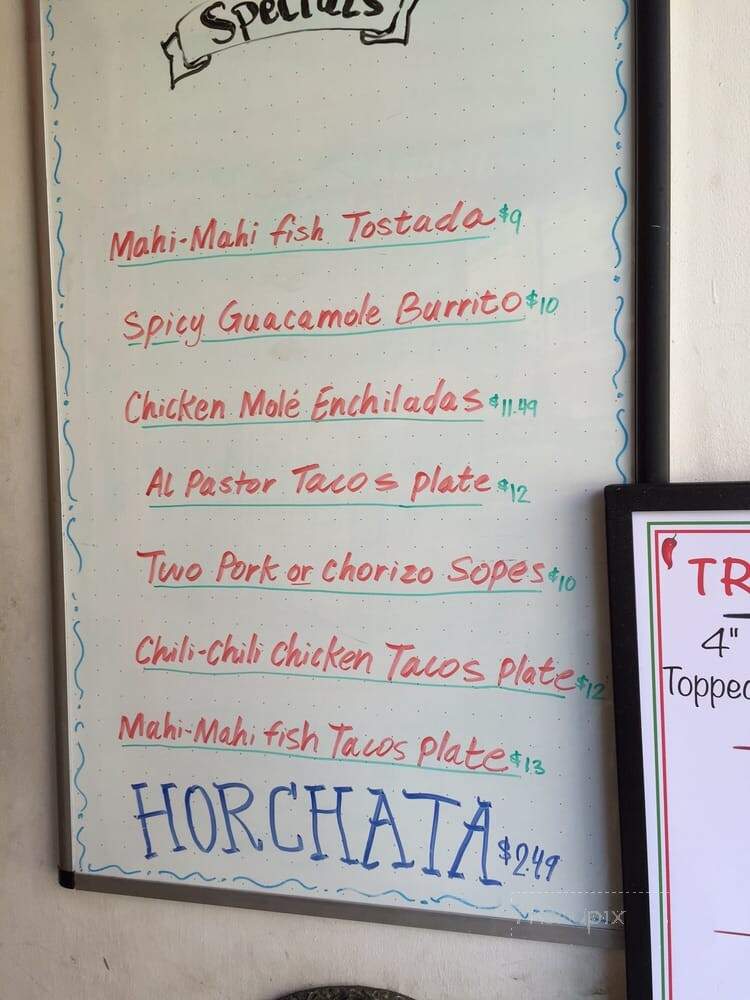 Specials
Mahi-Mahi fish Tostada $9
Spicy Guacamole Burrito $10
Chicken Molé Enchiladas $11.49
Al Pastor Tacos plate $12
Two Pork or chorizo Sopes $10
Chili-Chili Chicken Tacos Plate $12
Mahi-Mahi fish Tacos Plate $13
HORCHATA $2.49
TR
4"
Topped
menupix